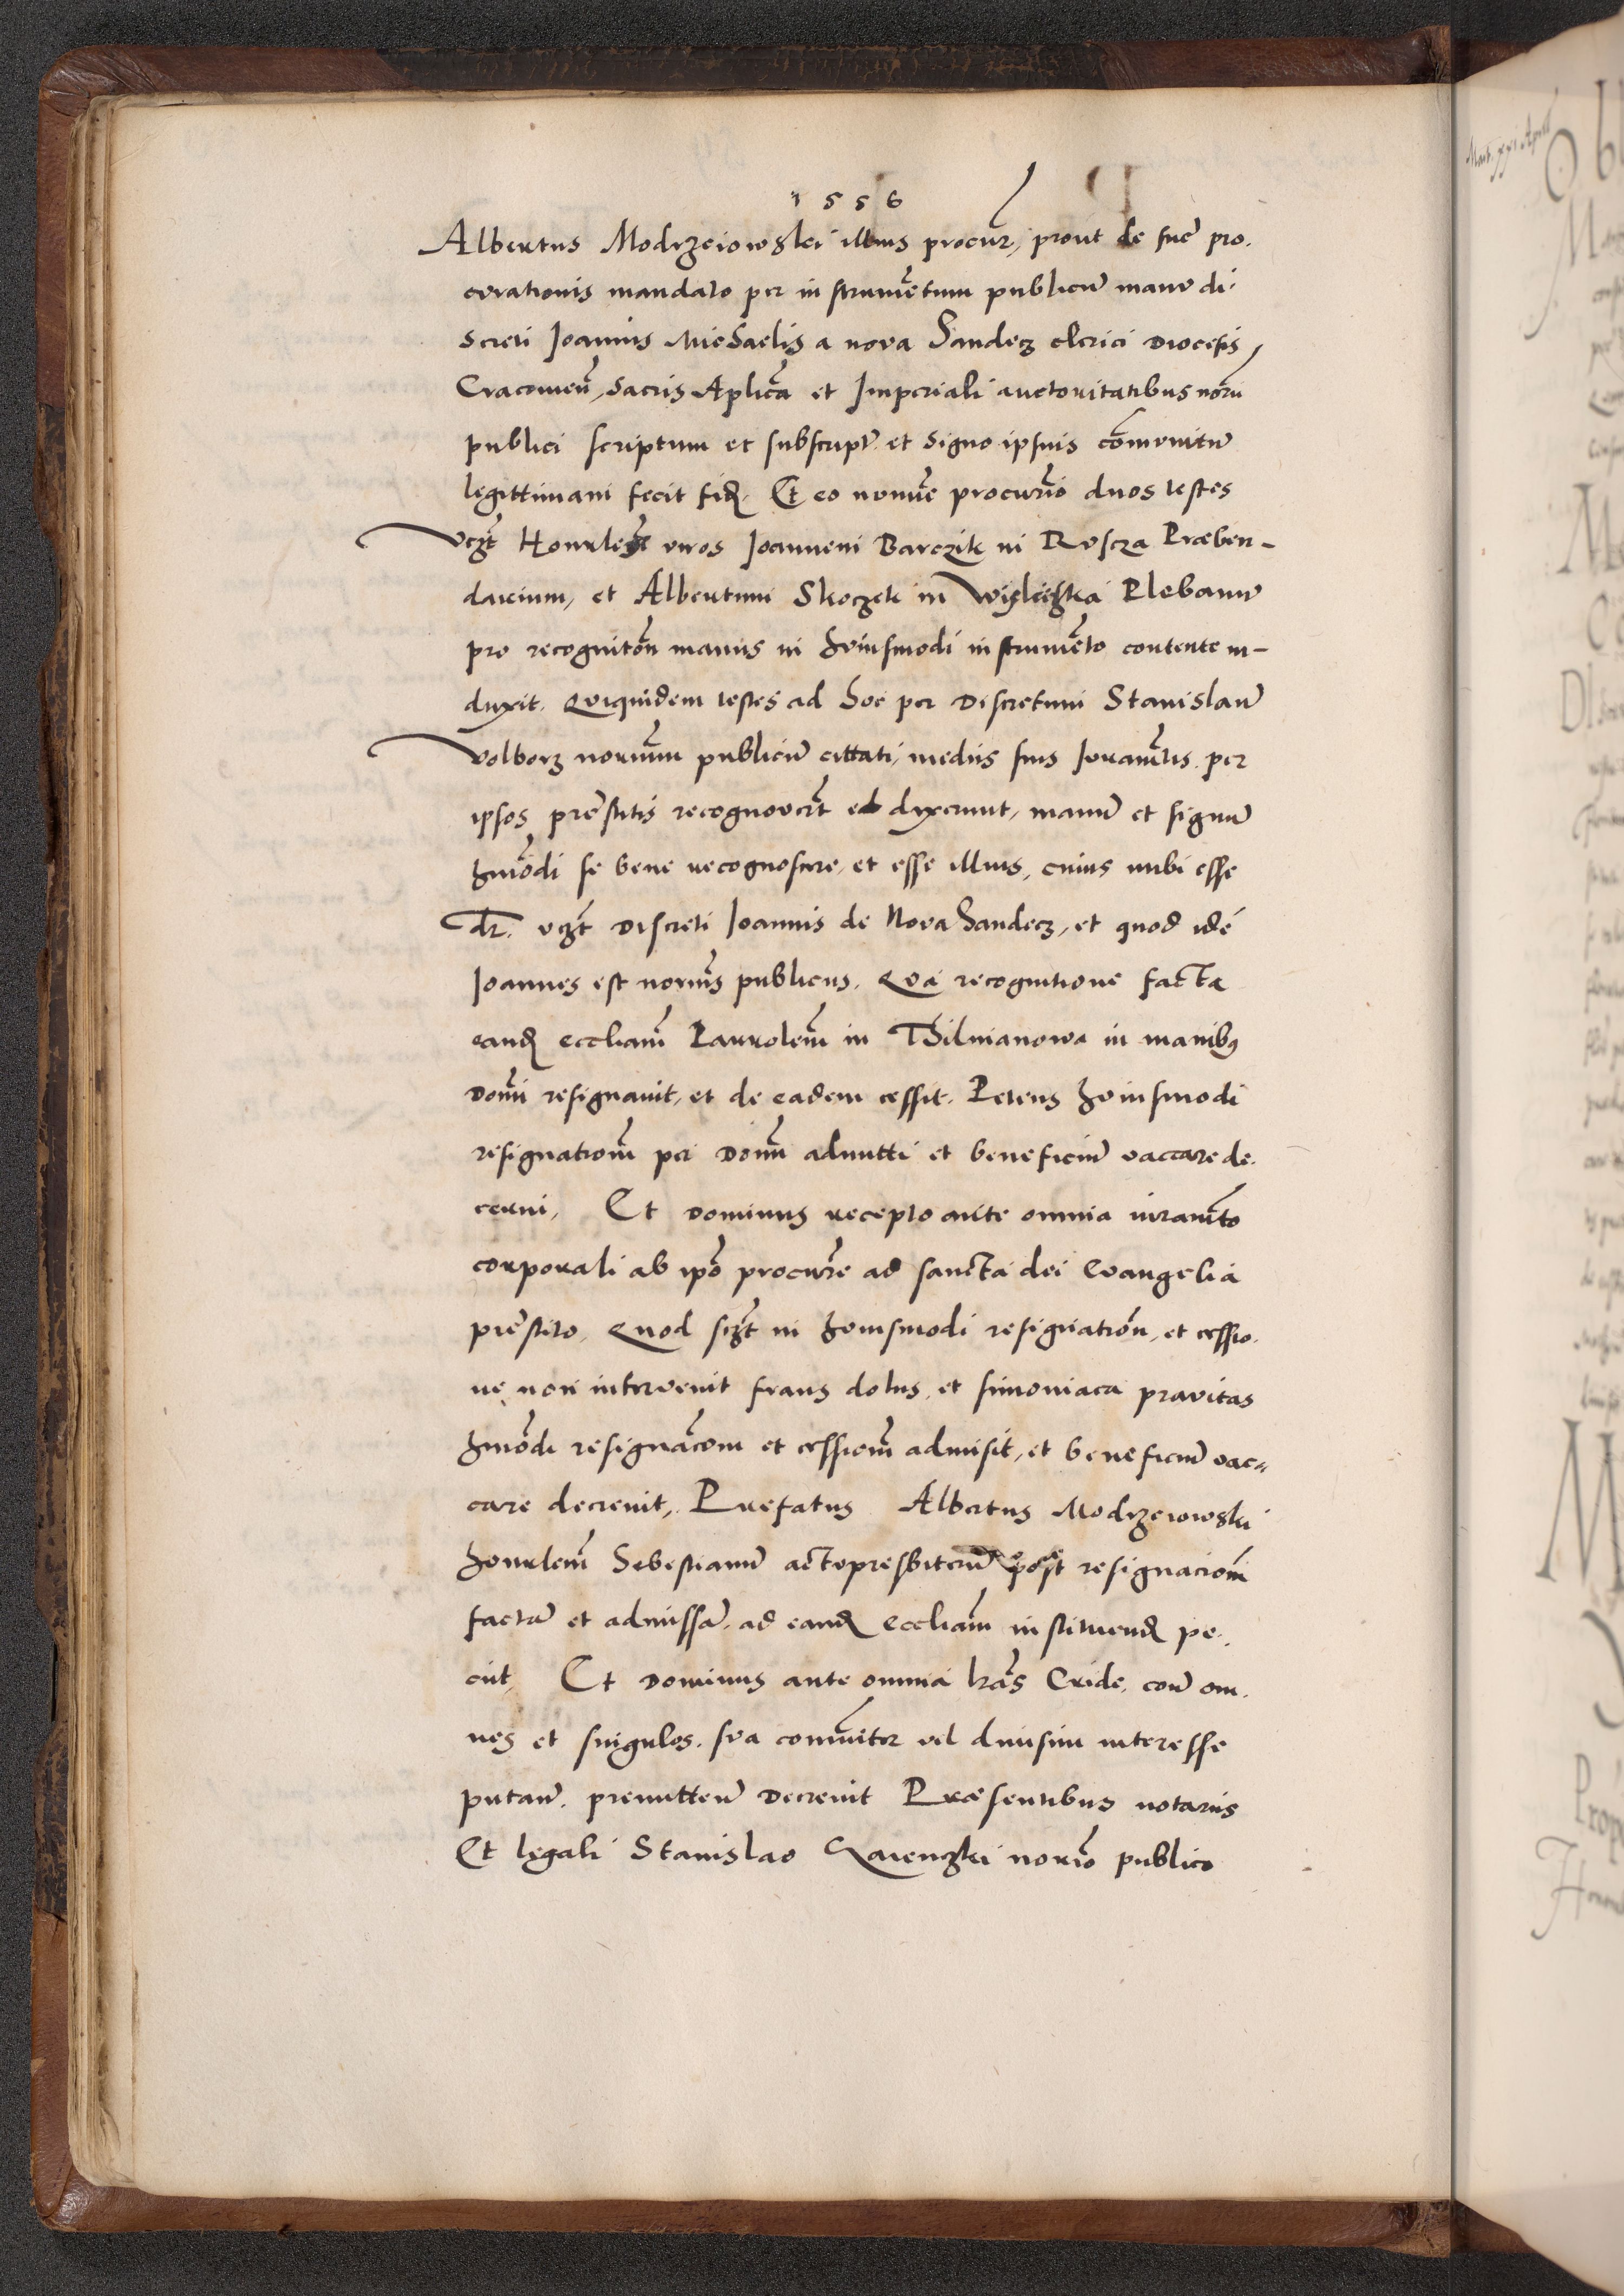 1556
Albertus Modrzeiowski illius procur, prout de sue pro-
curationis mandato per instrumẽtum publicũ manu di-
screti Joannis Michaelis a nova Sandecz clerici Diocesis
Cracovieñ, sacris Aplica et Imperiali auctoritatibus norii
publici scriptum et subscriptũ et signo ipsius cõmunitũ
legittimam fecit fid. Et eo nomine procurio duos testes
vczt Honrles viros Joannem Barczik in Ruscza Præben-
darium, et Albertum Skoczek in Wisliczka Plebanũ
pro recognitõn manus in huiusmodi instrumẽto contente in-
duxit. Quiquidem testes ad hoc per Discretum Stanislaũ
Volborz noriũm publicũ cittati, mediis suis Juramtis per
ipsos prestitis recognovert et dixerunt, manũ et signũ
hmõdi se bene recognoscere, et esse illius, cuius inibi esse
dr. vczt Discreti Joannis de Nova Sandecz, et quod idé
Joannes est norius publicus. Qua recognitione facta
eand eccliam Parrolem in Tilmanowa in manibus
Domi resignavit, et de eadem cessit. Petens huiusmodi
resignationm per Domm admitti et beneficiũ vaccare de-
cerni, Et Dominus recepto ante omnia iuramto
corporali ab ipõ procure ad sancta dei Evangelia
prestito, Quod sczt in huiusmodi resignatiõn, et cessio-
ne non intervenit fraus dolus, et simoniaca pravitas
hmõdi resignacõm et cessionm admisit, et beneficiũ vac-
care decrevit, Prefatus Albertus Modrzeiowski
honrlem Sebestianũ actu presbiterũ post resignacionm
factã et admissã, ad eand Eccliam instituend pe-
ciit, Et Dominus ante omnia lras Cride, conũ om-
nes et singulos, sua comuniter vel divisim interesse
putañ, premitteñ Decrevit Præsentibus notariis
Et legali Stanislao norio publico